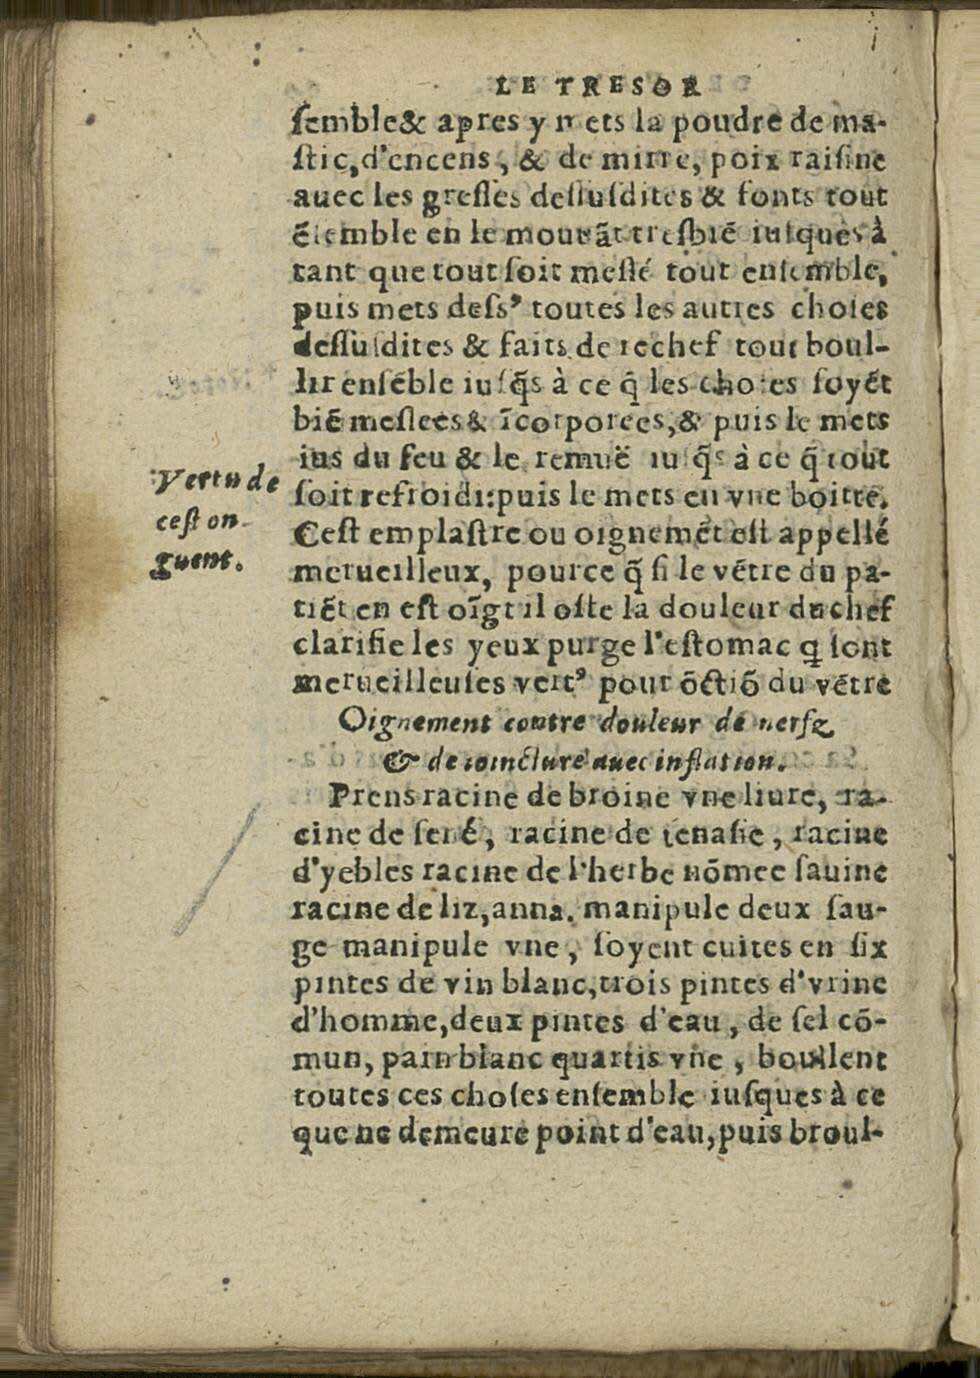 LE TRESOR
ſemble& apres y mets la poudre de ma-
ſtic, d'encens, & de mirre, poix raiſine
auec les greſſes deſſuſdites & fonts tout
ẽſemble en le mouuãt treſbiẽ iuſques à
tant que tout ſoit meſlé tout enſemble,
puis mets deſsꝰ toutes les autres choſes
deſſuſdites & faits de rechef tout boul-
lir enſẽble iuſq̃s à ce q̃ les choſes ſoyẽt
biẽ meſlees & ĩcorporees, & puis le mets
ius du feu & le remuë iuſq̃s à ce q̃ tout
ſoit refroidi: puis le mets en vne boitte.
Ceſt emplaſtre ou oignemẽt eſt appellé
merueilleux, pource q̃ ſi le vẽtre du pa-
tiẽt en eſt oĩgt il oſte la douleur du chef
clarifie les yeux purge l'eſtomac q ſont
merueilleuſes vertꝰ pour õctiõ du vẽtre
Vertu de
ceſt on-
guent.
Oignement contre douleur de nerfz
& de ioincture auec inflation.
Prens racine de broine vne liure, ra-
cine de ſené, racine de tenaſie, racine
d'yebles racine de l'herbe nõmee ſauine
racine de liz, anna. manipule deux ſau-
ge manipule vne, ſoyent cuites en ſix
pintes de vin blanc, trois pintes d'vrine
d'homme, deux pintes d'eau, de ſel cõ-
mun, pain blanc quartis vne, bouillent
toutes ces choſes enſemble iuſques à ce
que ne demeure point d'eau, puis broul-